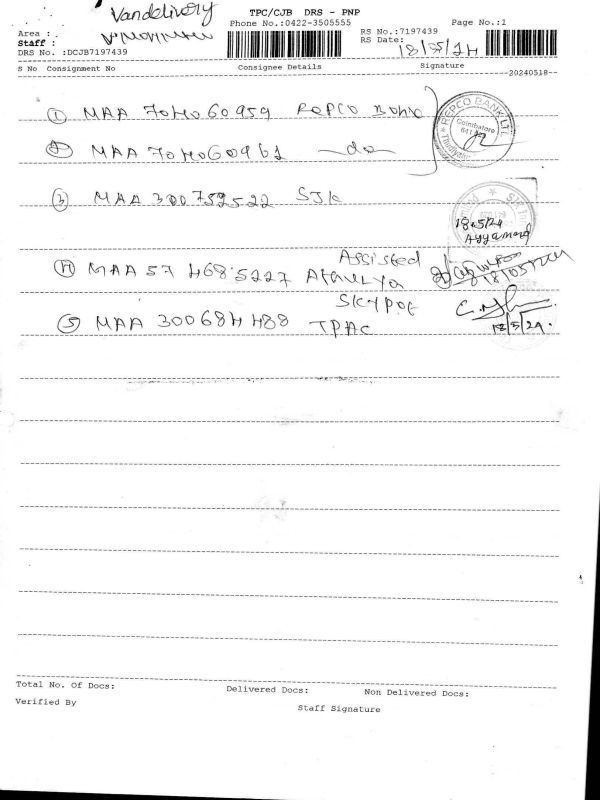 Vandelivery
TPC/CJB DRS - PNP
Phone No.:0422-3505555
Page No.:1
Area :
Staff :
DRS No. :DCJB7197439
RS No.:7197439
RS Date:
18/05/24
S No Consignment No Consignee Details Signature
20240518
1 MAA 704060959 REPCO Bank
2 MAA 704060961 -do-
REPCO BANK LTD.
Coimbatore
3 MAA 300752522 SJK
18/5/24
4 MAA 57 4685227 Assisted
18/05/2024
SKYPOT
5 MAA 300684488 TPAC
18/5/24.
Total No. Of Docs: Delivered Docs: Non Delivered Docs:
Verified By
Staff Signature